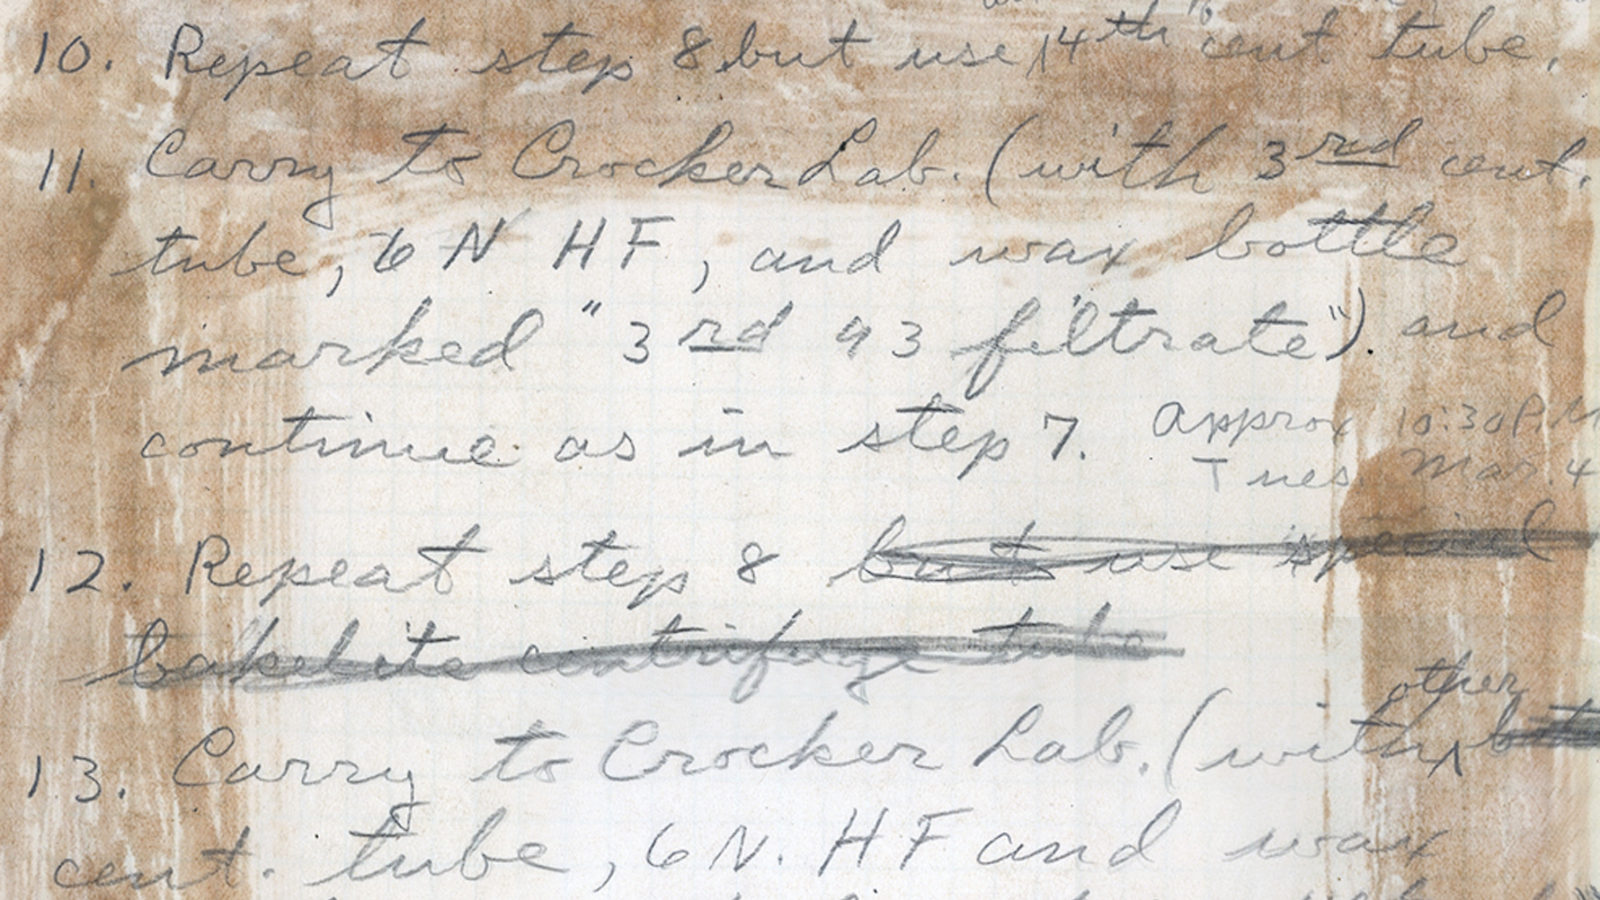 10. Repeat step 8 but use 14th cent tube.
11. Carry to Crocker Lab. (with 3rd cent.
tube, 6 N HF, and wax bottle
marked "3rd 93 filtrate"). and
continue as in step 7. Approx 10:30 P.M
Tues. Mar. 4
12. Repeat step 8 but use special
bakelite centrifuge tube
other
13. Carry to Crocker Lab. (with
cent. tube, 6 N. HF and wax